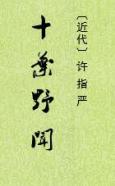 〔近代〕许指严
十叶野闻